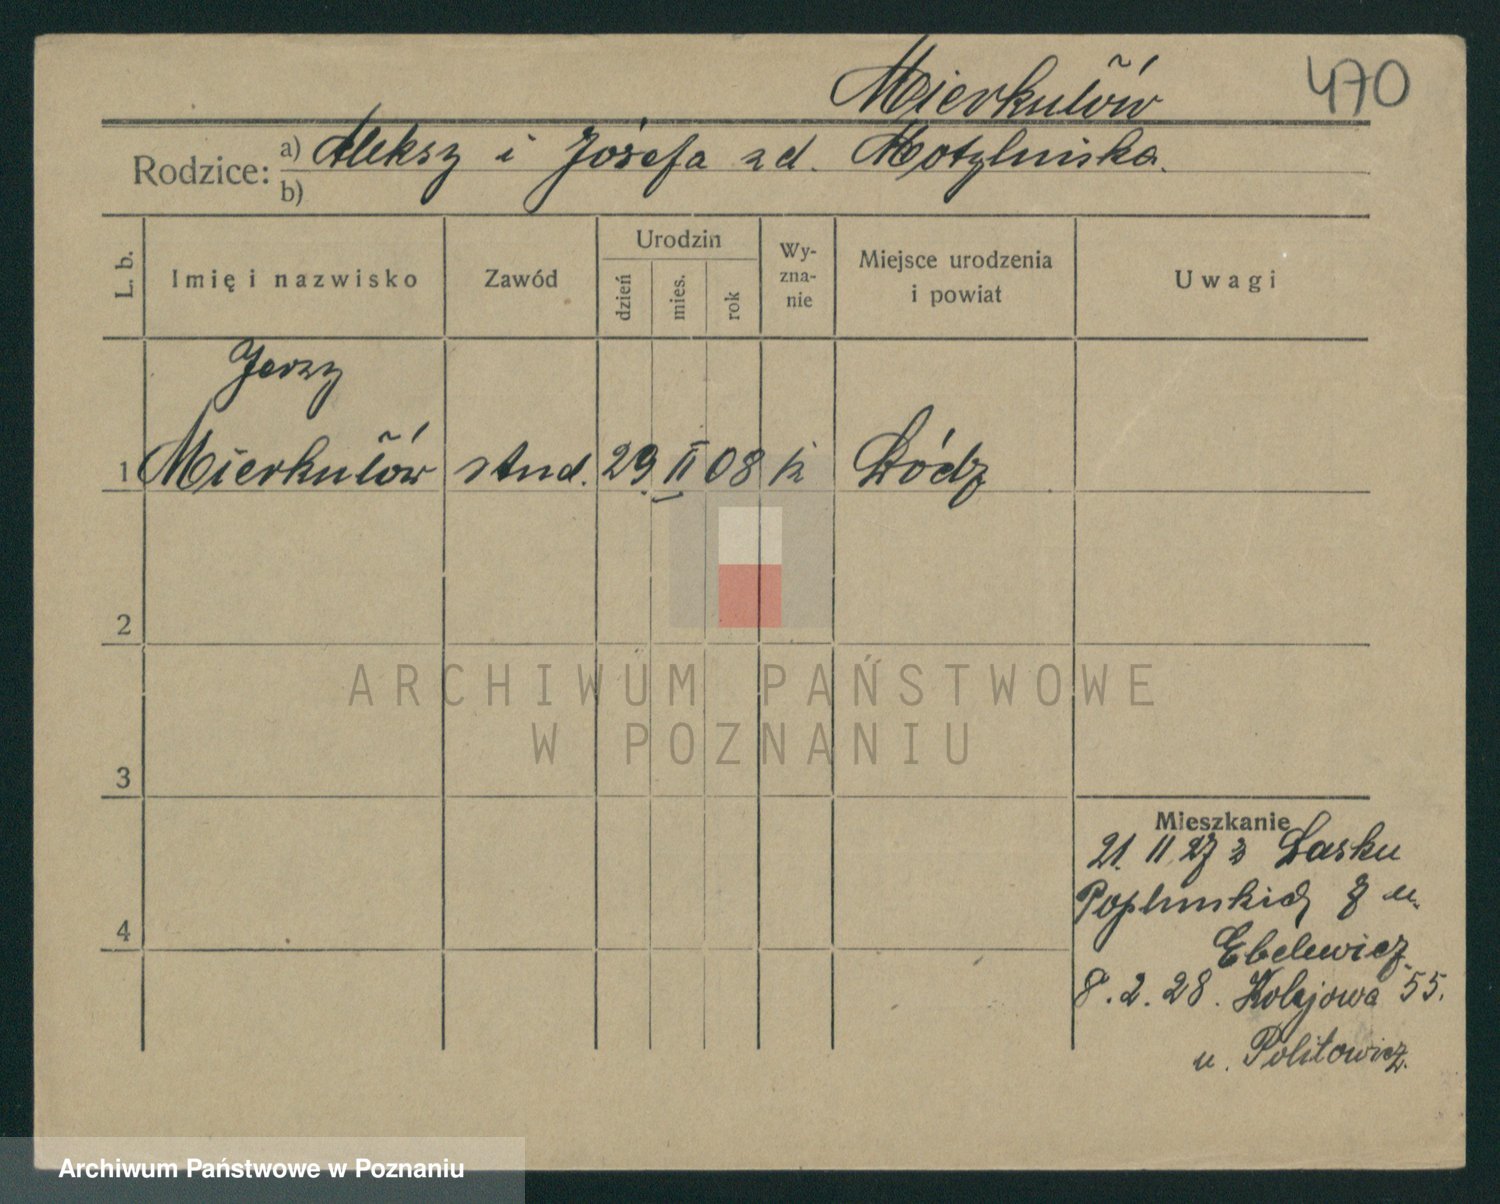 Mierkułów
470
Rodzice: a) Aleksy i Józefa zd. Motylińska.
b)
L. b.
Imię i nazwisko
Zawód
Urodzin
dzień
mies.
rok
Wy-
zna-
nie
Miejsce urodzenia
i powiat
Uwagi
Jerzy
1 Mierkułów stud. 29 II 08 k Łódź
2
ARCHIWUM PAŃSTWOWE
W POZNANIU
3
Mieszkanie
21. II 27 z Łasku
7 u.
4
8.2.28. Kolejowa 55.
u. Politowicz.
Archiwum Państwowe w Poznaniu